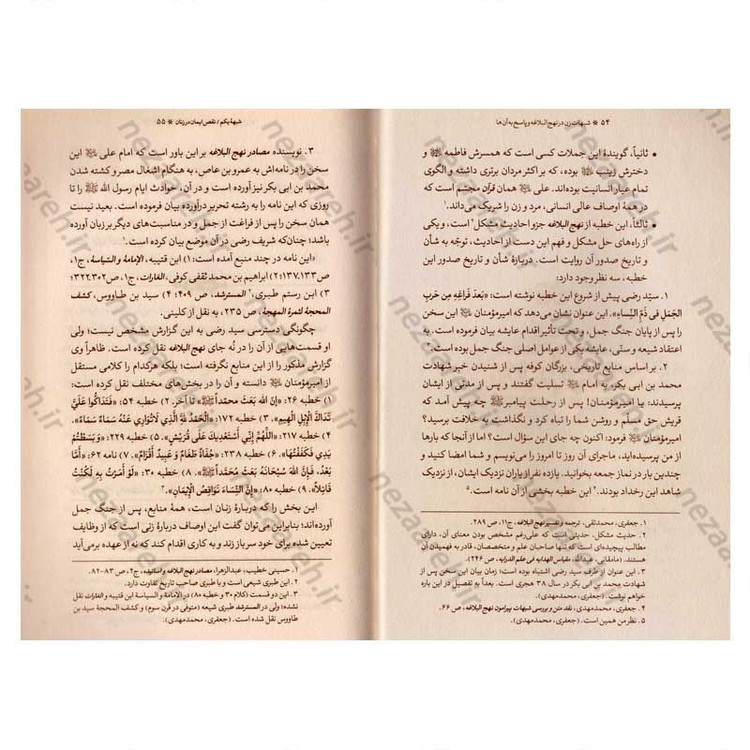 ۵۴ * شبهات زن در نهج البلاغه و پاسخ به آن‌ها
• ثانیاً، گویندهٔ این جملات کسی است که همسرش فاطمه و
دخترش زینب بوده، که بر اکثر مردان برتری داشته و الگوی
تمام عیار انسانیت بوده‌اند. علی همان قرآن مجسّم است که
در همهٔ اوصاف عالی انسانی، مرد و زن را شریک می‌داند.۱
• ثالثاً، این خطبه از نهج البلاغه جزو احادیث مشکل۲ است، و یکی
از راه‌های حل مشکل و فهم این دست از احادیث، توجّه به شأن
و تاریخ صدور آن روایت است. دربارهٔ شأن و تاریخ صدور این
خطبه، سه نظر وجود دارد:
۱. سیّد رضی پیش از شروع این خطبه نوشته است: «بَعدَ فَراغِهِ مِن حَربِ
الجَمَلِ في ذَمِّ النِّساءِ». این عنوان نشان می‌دهد که امیرمؤمنان این سخن
را پس از پایان جنگ جمل، و تحت تأثیر اقدام عایشه بیان فرموده است. به
اعتقاد شیعه و سنّی، عایشه یکی از عوامل اصلی جنگ جمل بوده است.۴
۲. بر اساس منابع تاریخی، بزرگان کوفه پس از شنیدن خبر شهادت
محمد بن ابی بکر، به امام تسلیت گفتند و پس از مدتی از ایشان
پرسیدند: یا امیرمؤمنان! پس از رحلت پیامبر چه پیش آمد که
قریش حق مسلّم و روشن شما را تباه کرد و نگذاشت به خلافت برسید؟
امیرمؤمنان فرمود: اکنون چه جای این سؤال است؟ اما از آنجا که بارها
از من پرسیده‌اید، ماجرای آن روز تا امروز را می‌نویسم و شما امضا کنید و
چندین بار در نماز جمعه بخوانید. یازده نفر از یاران نزدیک ایشان، از نزدیک
شاهد این رخداد بودند.۵ این خطبه بخشی از آن نامه است.۶
۱. جعفری، محمدتقی، ترجمه و تفسیر نهج البلاغه، ج۱۱، ص ۲۸۹.
۲. حدیث مشکل، حدیثی است که علی‌رغم مشخص بودن معنای آن، دارای
مطالب پیچیده‌ای است که تنها صاحبان علم و متخصصان، قادر به فهمیدن آن
هستند. (مامقانی، عبدالله، مقباس الهدایه فی علم الدرایه، ص ۲۴۶)
۳. این عنوان از طرف سید رضی اشتباه بوده است؛ چون زمان بیان این سخن پس از
شهادت محمد بن ابی بکر در سال ۳۸ هجری است. بعداً به تفصیل در این باره
خواهم نوشت. (جعفری، محمدمهدی).
۴. جعفری، محمدمهدی، نقد متن و بررسی شبهات پیرامون نهج البلاغه، ص ۶۶.
۵. نظر من همین است. (جعفری، محمدمهدی).
شبههٔ یکم / نقص ایمان در زنان * ۵۵
۳. نویسنده مصادر نهج البلاغه بر این باور است که امام علی این
سخن را در نامه‌اش به عمرو بن عاص، به هنگام اشغال مصر و کشته شدن
محمد بن ابی بکر نیز آورده است و در آن، حوادث ایام رسول الله را تا
روزی که این نامه را به رشته تحریر درآورده بیان فرموده است. بعید نیست
همان سخن را پس از فراغت از جمل و در مناسبت‌های دیگر بر زبان آورده
باشد؛ چنان‌که شریف رضی در آن موضع بیان کرده است.۱
«این نامه در چند منبع آمده است: ۱) ابن قتیبه، الإمامة و السّیاسة، ج۱،
ص۱۳۳-۱۳۷؛ ۲) ابراهیم بن محمد ثقفی کوفی، الغارات، ج۱، ص۳۰۲-۳۲۲؛
۳) ابن رستم طبری،۲ المسترشد، ص ۴۰۹؛ ۴) سید بن طاووس، کشف
المحجة لثمرة المهجة، ص ۲۳۵، به نقل از کلینی.
چگونگی دسترسی سید رضی به این گزارش مشخص نیست؛ ولی
او قسمت‌هایی از آن را در نُه جای نهج البلاغه نقل کرده است. ظاهراً وی
گزارش مذکور را از این منابع نگرفته است؛ بلکه هرکدام را کلامی مستقل
از امیرمؤمنان دانسته و آن را در بخش‌های مختلف نقل کرده است:
۱) خطبه ۲۶: «إنَّ اللهَ بَعَثَ مُحَمَّداً» تا آخر. ۲) خطبه ۵۴: «فَتَدَاكُّوا عَلَيَّ
تَدَاكَّ الْإِبِلِ الْهِيمِ». ۳) خطبه ۱۷۲: «الْحَمْدُ لِلَّهِ الَّذِي لَا تُوَارِي عَنْهُ سَمَاءٌ سَمَاءً».
۴) خطبه ۲۱۷: «اللَّهُمَّ إِنِّي أَسْتَعْدِيكَ عَلَى قُرَيْشٍ». ۵) خطبه ۲۲۹: «وَ بَسَطْتُمْ
يَدِي فَكَفَفْتُهَا». ۶) خطبه ۲۳۸: «جُفَاةٌ طَغَامٌ وَ عَبِيدٌ أَقْزَامٌ». ۷) نامه ۶۲: «أَمَّا
بَعْدُ، فَإِنَّ اللهَ سُبْحَانَهُ بَعَثَ مُحَمَّداً». ۸) خطبه ۳۰: «لَوْ أَمَرْتُ بِهِ لَكُنْتُ
قَاتِلًا». ۹) خطبه ۸۰: «إنَّ النِّسَاءَ نَوَاقِصُ الْإِيمَانِ».۳
این بخش را که دربارهٔ زنان است، همهٔ منابع، پس از جنگ جمل
آورده‌اند؛ بنابراین می‌توان گفت این اوصاف دربارهٔ زنی است که از وظایف
تعیین شده برای خود سر باز زند و به کاری اقدام کند که نه از عهده برمی‌آید
۱. حسینی خطیب، عبدالزهرا، مصادر نهج البلاغه و اسانیده، ج۲، ص ۸۳-۸۲.
۲. این طبری شیعی است و با طبری صاحب تاریخ تفاوت دارد.
۳. این دو قسمت (کلام ۳۰ و خطبه ۸۰) در الإمامة و السیاسة ابن قتیبه و الغارات نقل
نشده؛ ولی در المسترشد طبری شیعه (متوفی در قرن سوم) و کشف المحجة سید بن
طاووس نقل شده است. (جعفری، محمدمهدی).
nezaareh.ir